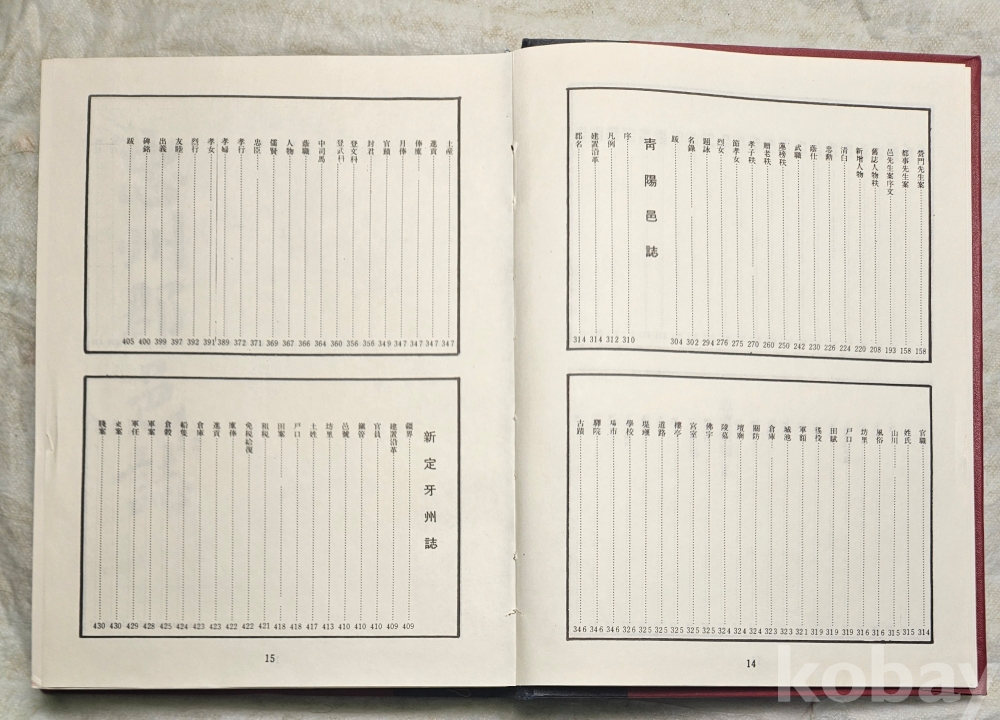 營門先生案 158
都事先生案 158
邑先生案序文 193
舊誌人物秩 208
新增人物 220
淸白 224
忠勳 226
蔭仕 230
武職 242
蓮榜秩 250
贈老秩 260
孝子秩 270
節孝女 275
烈女 276
題詠 294
名錄 302
跋 304
靑陽邑誌
序 310
凡例 312
建置沿革 314
郡名 314
官職 314
姓氏 315
山川 315
風俗 316
坊里 316
戶口 319
田賦 319
徭役 319
軍額 321
城池 323
倉庫 323
關防 324
壇廟 324
陵墓 324
佛宇 325
宮室 325
樓亭 325
道路 325
堤堰 325
學校 326
場市 346
驛院 346
古蹟 346
14
土産 347
進貢 347
俸廩 347
月俸 347
官蹟 349
封君 356
登文科 356
登武科 360
中司馬 364
蔭職 366
人物 367
儒賢 369
忠臣 371
孝行 372
孝婦 389
孝女 391
烈行 392
友睦 397
出義 399
碑銘 400
跋 405
新定牙州誌
疆界 409
建置沿革 409
官員 410
鎭管 410
邑號 410
坊里 413
土姓 417
戶口 418
田案 418
租稅 421
免稅給復 422
廩俸 422
進貢 423
倉庫 423
船隻 424
倉穀 425
軍案 428
軍任 429
吏案 430
賤案 430
15
kobay